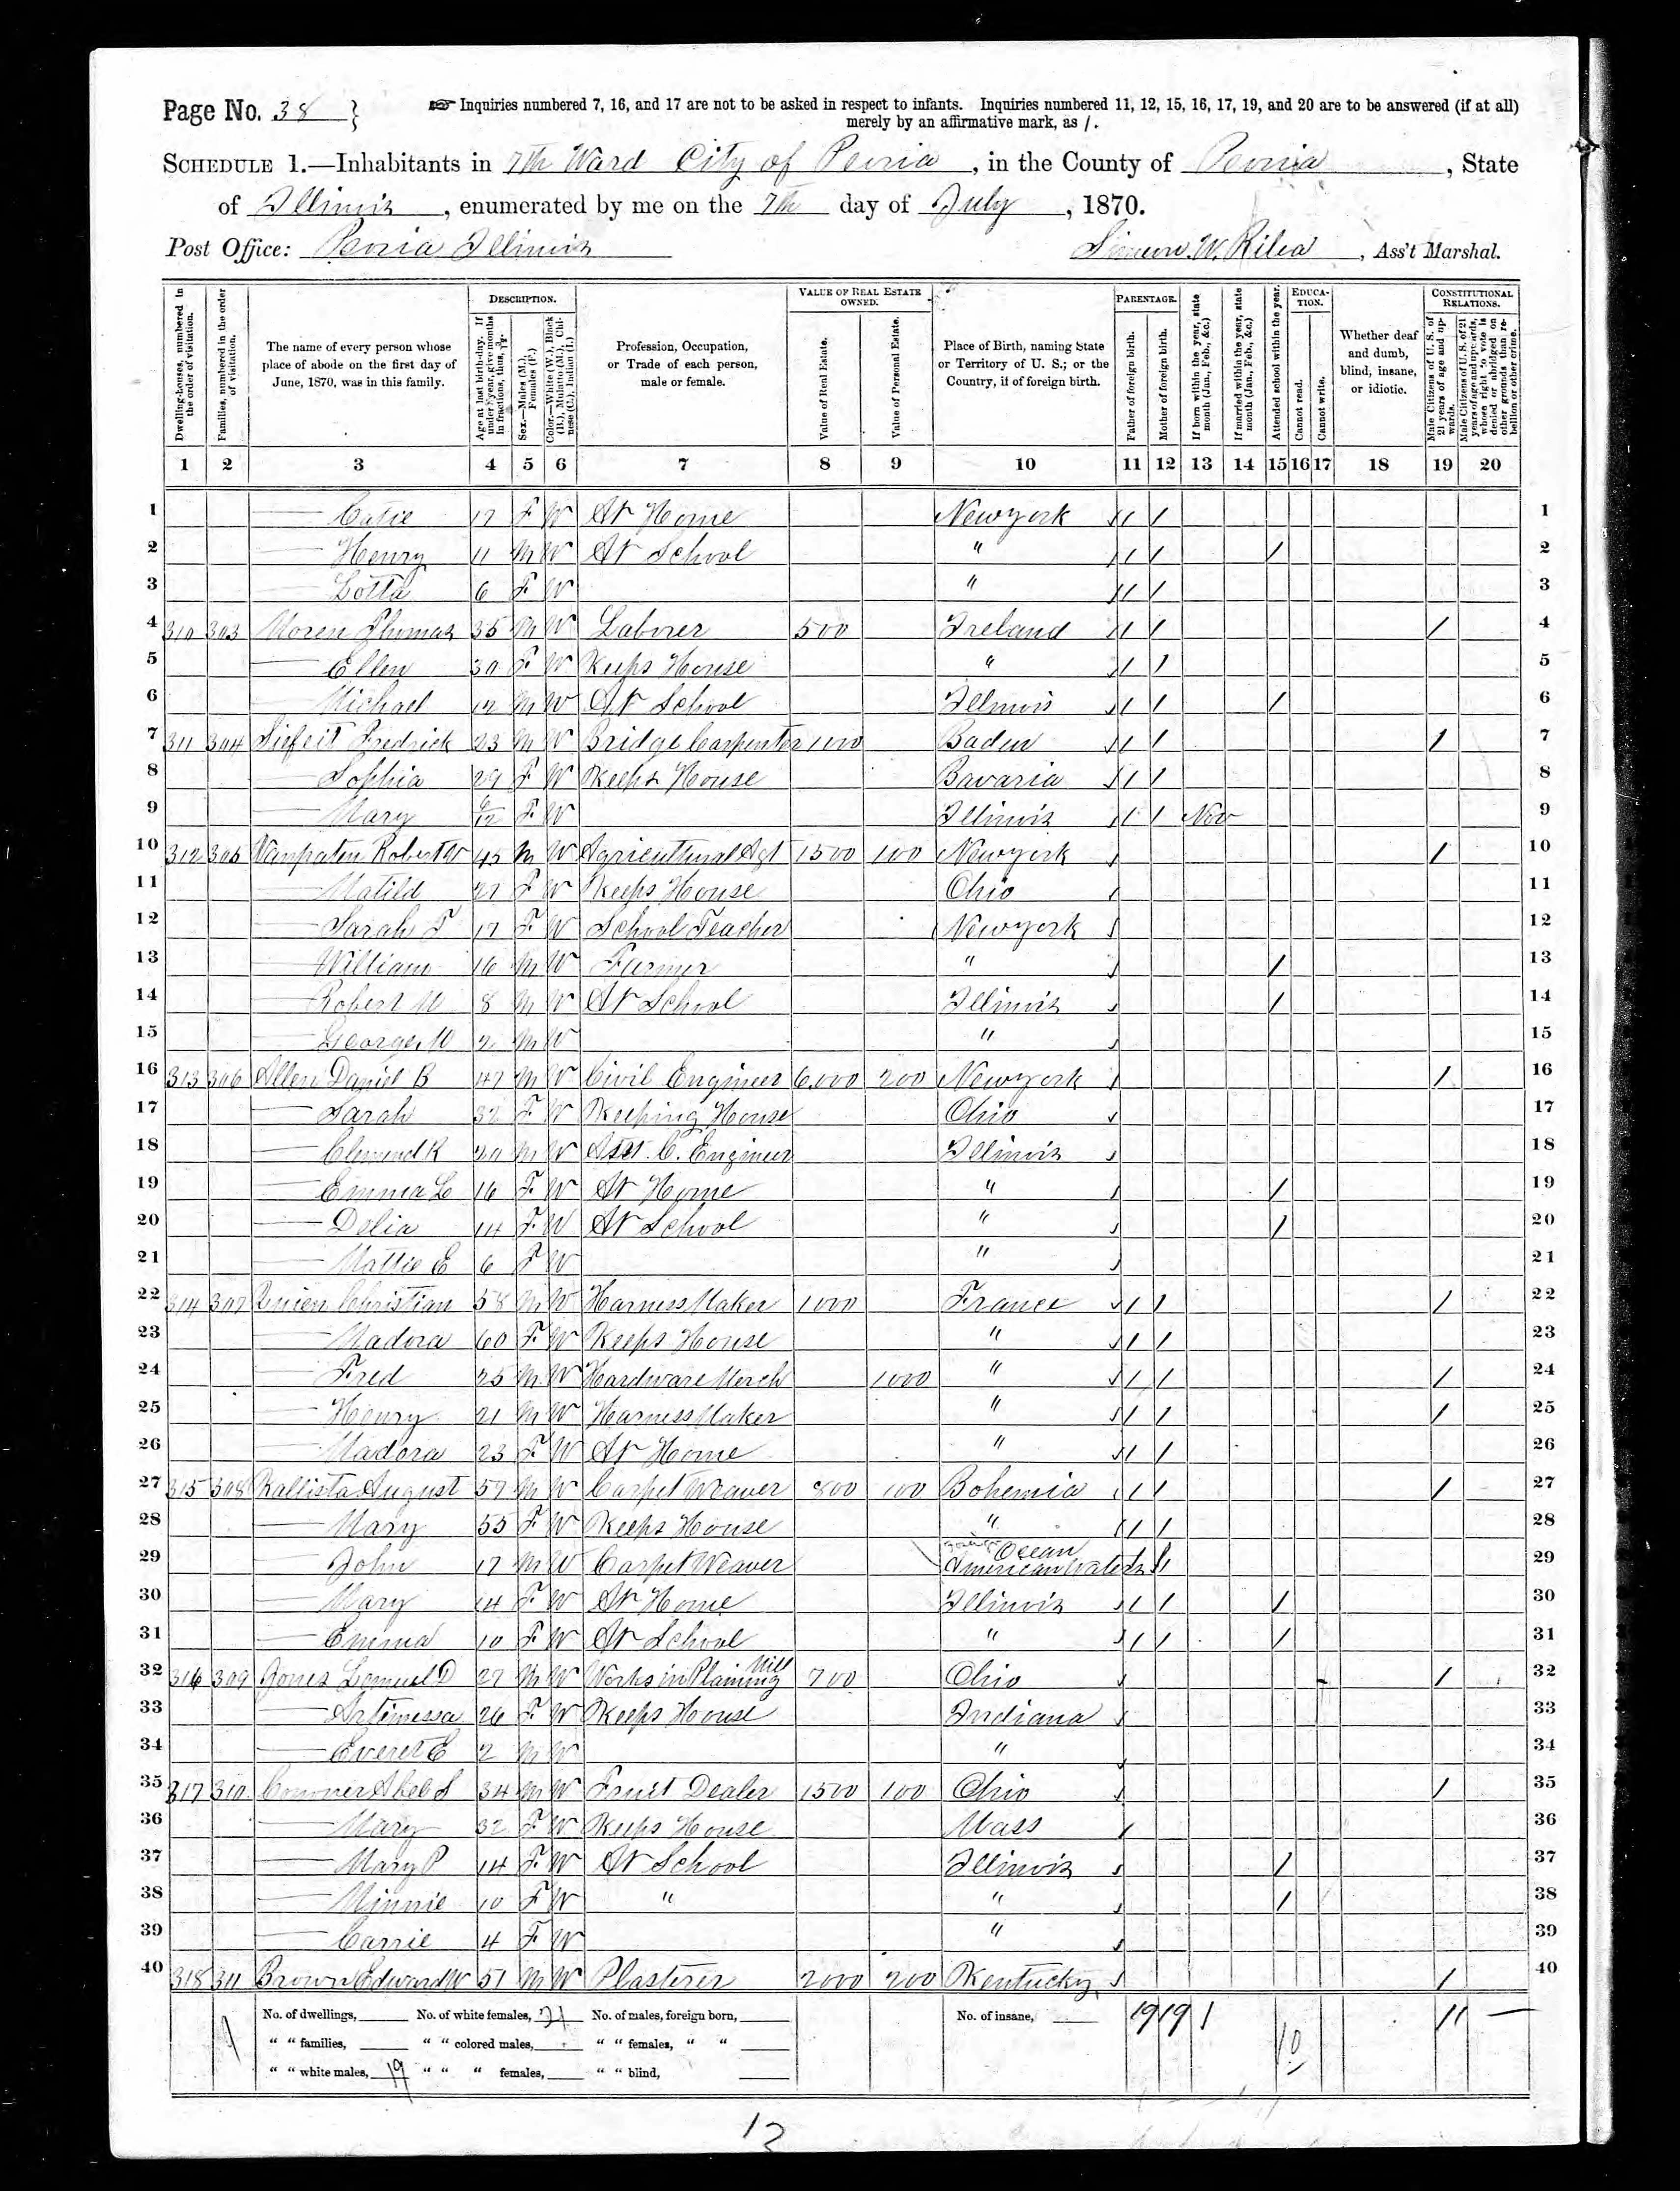 Page No. 38 }
☞ Inquiries numbered 7, 16, and 17 are not to be asked in respect to infants. Inquiries numbered 11, 12, 15, 16, 17, 19, and 20 are to be answered (if at all)
merely by an affirmative mark, as /.
SCHEDULE 1.—Inhabitants in 7th Ward City of Peoria, in the County of Peoria, State
of Illinois, enumerated by me on the 7th day of July, 1870.
Post Office: Peoria Illinois
Simeon W. Rilea, Ass't Marshal.
Dwelling-houses, numbered in the order of visitation.
Families, numbered in the order of visitation.
The name of every person whose place of abode on the first day of June, 1870, was in this family.
DESCRIPTION.
Age at last birth-day. If under 1 year, give months in fractions, thus, 3/12.
Sex.—Males (M.), Females (F.)
Color.—White (W.), Black (B.), Mulatto (M.), Chinese (C.), Indian (I.)
Profession, Occupation, or Trade of each person, male or female.
VALUE OF REAL ESTATE OWNED.
Value of Real Estate.
Value of Personal Estate.
Place of Birth, naming State or Territory of U. S.; or the Country, if of foreign birth.
PARENTAGE.
Father of foreign birth.
Mother of foreign birth.
If born within the year, state month (Jan., Feb., &c.)
If married within the year, state month (Jan., Feb., &c.)
Attended school within the year.
EDUCATION.
Cannot read.
Cannot write.
Whether deaf and dumb, blind, insane, or idiotic.
CONSTITUTIONAL RELATIONS.
Male Citizens of U. S. of 21 years of age and upwards.
Male Citizens of U. S. of 21 years of age and upwards, whose right to vote is denied or abridged on other grounds than rebellion or other crime.
1 2 3 4 5 6 7 8 9 10 11 12 13 14 15 16 17 18 19 20
1 — Catie 17 F W At Home Newyork / / 1
2 — Henry 11 M W At School " / / / 2
3 — Lotta 6 F W " / / 3
4 310 303 Moren Thomas 35 M W Laborer 500 Ireland / / / 4
5 — Ellen 30 F W Keeps House " / / 5
6 — Michael 12 M W At School Illinois / / / 6
7 311 304 Siefeit Fredrick 23 M W Bridge Carpenter 1000 Baden / / / 7
8 — Sophia 29 F W Keeps House Bavaria / / 8
9 — Mary F W Illinois / / Nov 9
10 312 305 Vanpaten Robert W 45 M W Agricultural Agt 1500 100 Newyork / 10
11 — Matild 27 F W Keeps House Ohio 11
12 — Sarah F 17 F W School Teacher Newyork 12
13 — William 16 M W Farmer " / 13
14 — Robert M 8 M W At School Illinois / 14
15 — George M 2 M W " 15
16 313 306 Allen Daniel B 47 M W Civil Engineer 6,000 200 Newyork / 16
17 — Sarah 32 F W Keeping House Ohio 17
18 — Clemend K 20 M W Asst. C. Engineer Illinois 18
19 — Emma L 16 F W At Home " / 19
20 — Delia 14 F W At School " / 20
21 — Mattie E 6 F W " 21
22 314 307 Christian 58 M W Harness Maker 1000 France / / / 22
23 — Madora 60 F W Keeps House " / / 23
24 — Fred 25 M W Hardware Merch 1000 " / / / 24
25 — Henry 21 M W Harness Maker " / / / 25
26 — Madora 23 F W At Home " / / 26
27 315 308 Kallista August 57 M W Carpet Weaver 800 100 Bohemia / / / 27
28 — Mary 55 F W Keeps House " / / 28
29 — John 17 M W Carpet Weaver Ocean American Waters / / 29
30 — Mary 14 F W At Home Illinois / / / 30
31 — Emma 10 F W At School " / / / 31
32 316 309 Jones Lemuel D 27 M W Works in Plaining Mill 700 Ohio / 32
33 — Artemessa 26 F W Keeps House Indiana 33
34 — Everet E 2 M W " 34
35 317 310 Conner Abel S 34 M W Fruit Dealer 1500 100 Ohio / 35
36 — Mary 32 F W Keeps House Mass 36
37 — Mary P 14 F W At School Illinois / 37
38 — Minnie 10 F W " " / 38
39 — Carrie 4 F W " 39
40 318 311 Brown Edward W 51 M W Plasterer 2000 200 Kentucky / 40
No. of dwellings, No. of white females, 21 No. of males, foreign born, No. of insane, 19 19 1 11 —
" " families, " " colored males, " " females, " " 10
" " white males, 19 " " " females, " " blind,
12